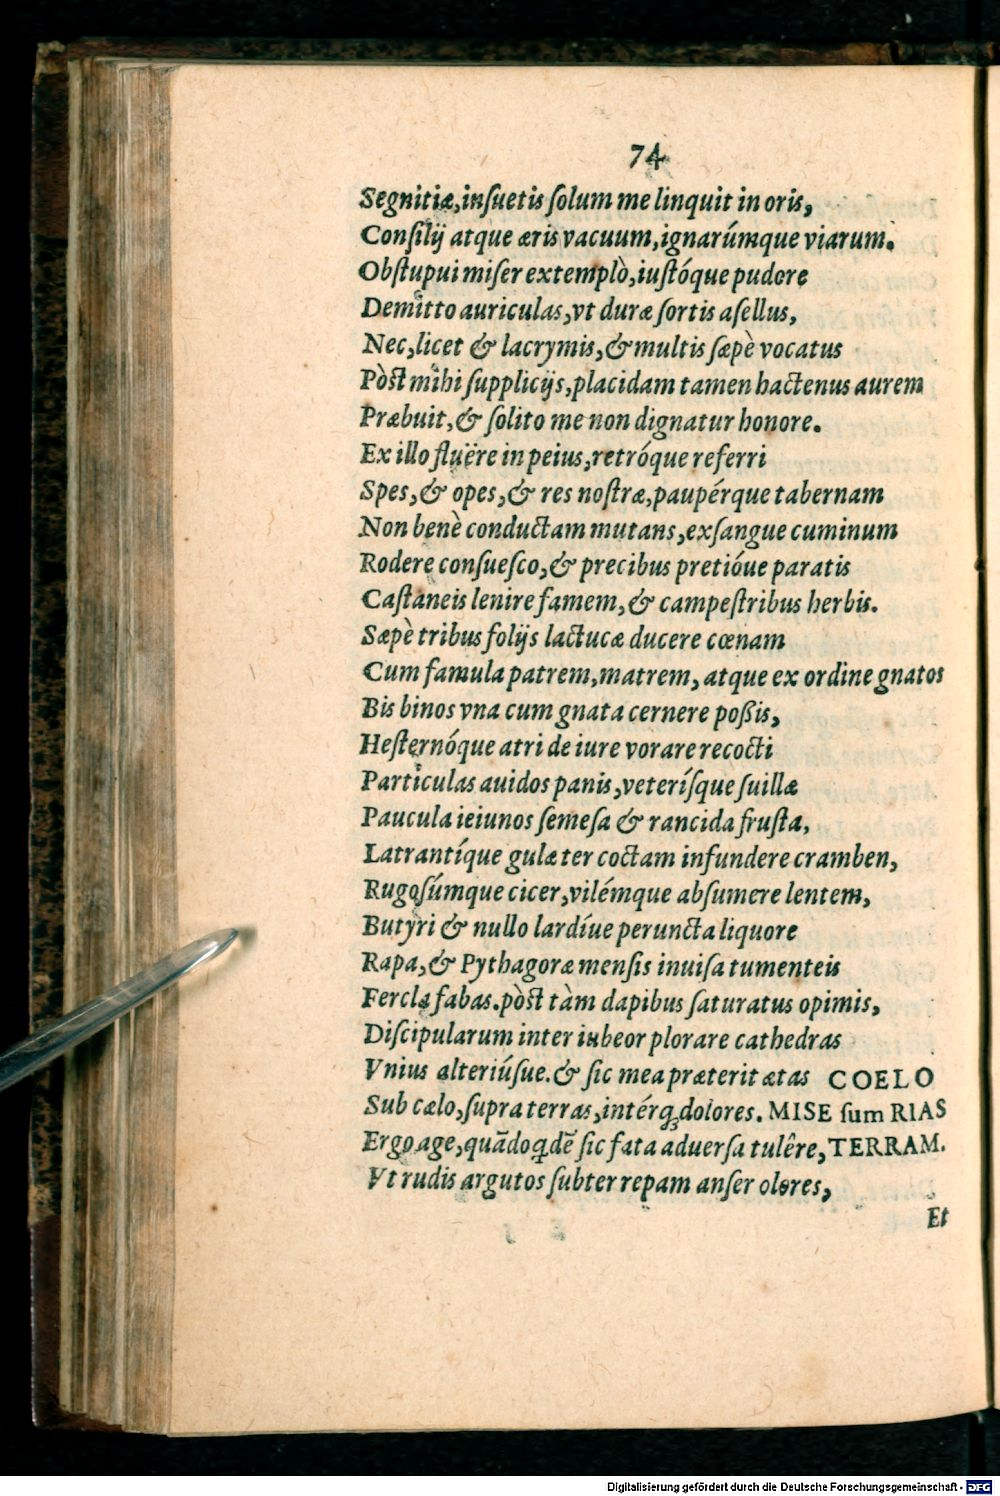 74
Segnitiæ,inſuetis ſolum me linquit in oris,
Conſilij atque æris vacuum,ignarúmque viarum.
Obſtupui miſer extemplò,iuſtóque pudore
Demitto auriculas,vt duræ ſortis aſellus,
Nec,licet & lacrymis,& multis ſæpè vocatus
Pòſt mihi ſupplicijs,placidam tamen hactenus aurem
Præbuit,& ſolito me non dignatur honore.
Ex illo fluëre in peius,retróque referri
Spes,& opes,& res noſtræ,paupérque tabernam
Non benè conductam mutans,exſangue cuminum
Rodere conſueſco,& precibus pretióue paratis
Caſtaneis lenire famem,& campeſtribus herbis.
Sæpè tribus folijs lactucæ ducere cœnam
Cum famula patrem,matrem, atque ex ordine gnatos
Bis binos vna cum gnata cernere poßis,
Heſternóque atri de iure vorare recocti
Particulas auidos panis,veteríſque ſuillæ
Paucula ieiunos ſemeſa & rancida fruſta,
Latrantíque gulæ ter coctam infundere cramben,
Rugoſúmque cicer,vilémque abſumere lentem,
Butyri & nullo lardíue peruncta liquore
Rapa,& Pythagoræ menſis inuiſa tumenteis
Fercla fabas.pòſt tàm dapibus ſaturatus opimis,
Diſcipularum inter iubeor plorare cathedras
Vnius alteriúſue.& ſic mea præterit ætas COELO
Sub cælo,ſupra terras,intérq; dolores. MISE ſum RIAS
Ergo age,quãdoqdẽ ſic fata aduerſa tulêre, TERRAM.
Vt rudis argutos ſubter repam anſer olores,
Et
Digitalisierung gefördert durch die Deutsche Forschungsgemeinschaft - DFG